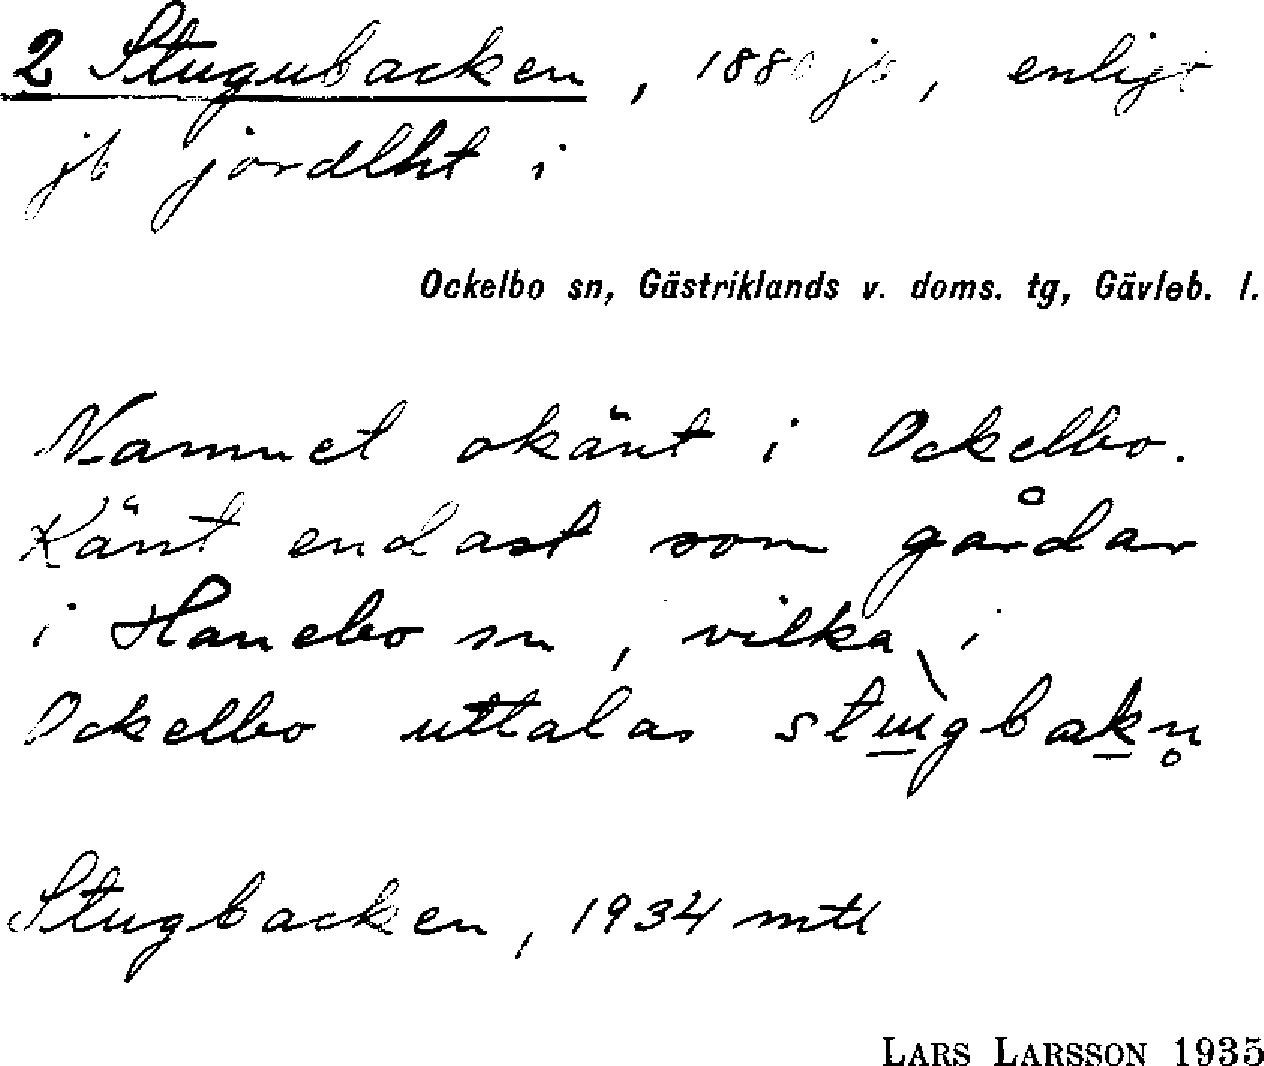 2 Stugubacken, 1880 jb, enligt
jb jordlht i
Ockelbo sn, Gästriklands v. doms. tg, Gävleb. l.
Namnet okänt i Ockelbo.
Känt endast som gårdar
i Hanebo sn, vilka i
Ockelbo uttalas
Stugbacken, 1934 mtl
LARS LARSSON 1935